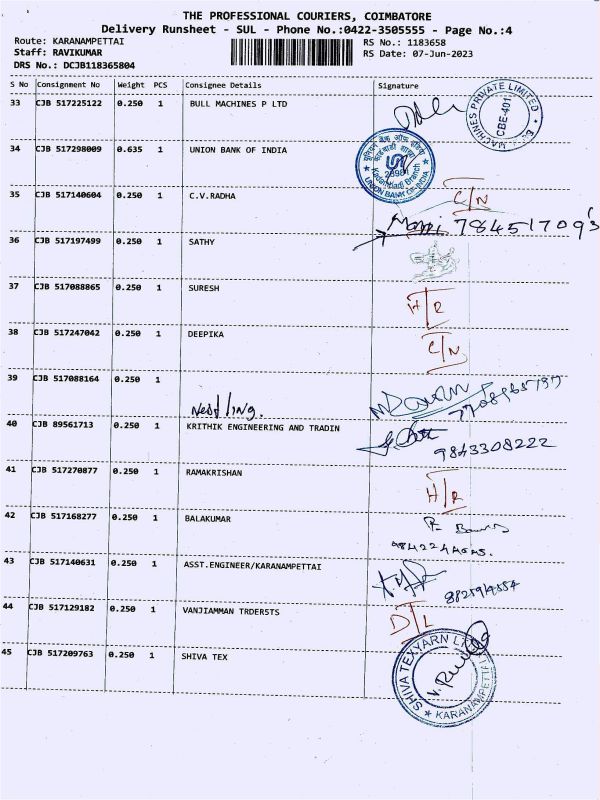 THE PROFESSIONAL COURIERS, COIMBATORE
Delivery Runsheet - SUL - Phone No.:0422-3505555 - Page No.:4
Route: KARANAMPETTAI RS No.: 1183658
Staff: RAVIKUMAR RS Date: 07-Jun-2023
DRS No.: DCJB118365804
S No Consignment No Weight PCS Consignee Details Signature
33 CJB 517225122 0.250 1 BULL MACHINES P LTD
MACHINES PRIVATE LIMITED
CBE-401
34 CJB 517298009 0.635 1 UNION BANK OF INDIA
Branch
UNION BANK OF INDIA
35 CJB 517140604 0.250 1 C.V.RADHA C/N
36 CJB 517197499 0.250 1 SATHY
37 CJB 517088865 0.250 1 SURESH H/R
38 CJB 517247042 0.250 1 DEEPIKA C/N
39 CJB 517088164 0.250 1
40 CJB 89561713 0.250 1 KRITHIK ENGINEERING AND TRADIN 9843308222
41 CJB 517270877 0.250 1 RAMAKRISHAN H/R
42 CJB 517168277 0.250 1 BALAKUMAR
43 CJB 517140631 0.250 1 ASST.ENGINEER/KARANAMPETTAI
44 CJB 517129182 0.250 1 VANJIAMMAN TRDERSTS D/L
45 CJB 517209763 0.250 1 SHIVA TEX
SHIVA TEXYARN LTD
KARANAMPETTAI